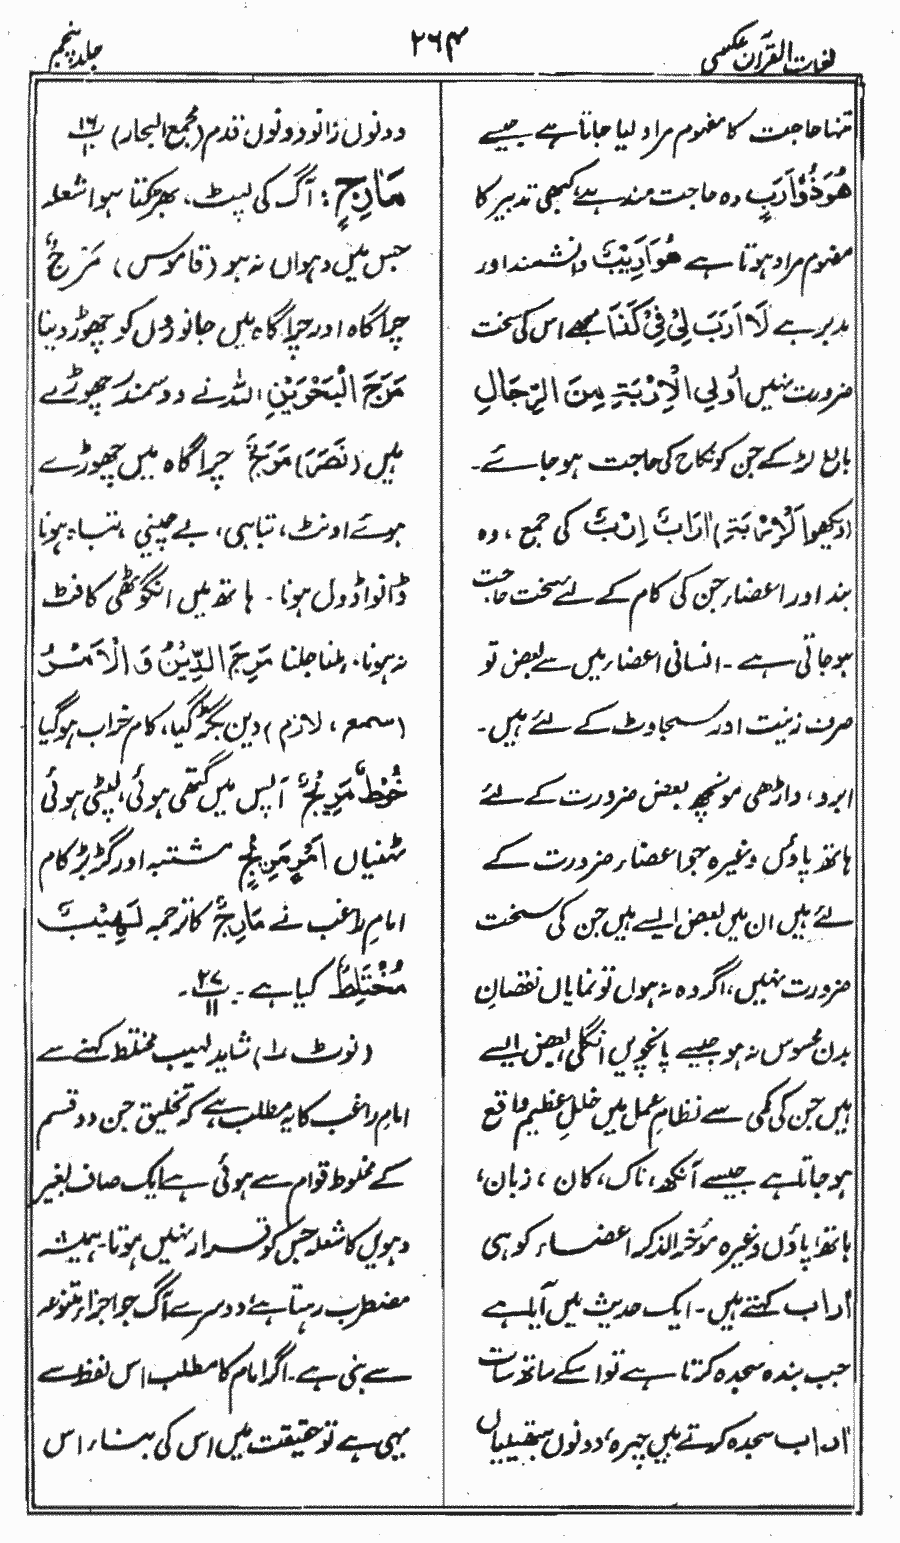 لغات القرآن عکسی
۲۶۴
جلد پنجم
تنہا حاجت کا مفہوم مراد لیا جاتا ہے جیسے
ھُوَ ذُوْ اَرَبٍ وہ حاجت مند ہے، کبھی تدبیر کا
مفہوم مراد ہوتا ہے ھُوَ اَرِیْبٌ دانشمند اور
مدبر ہے لَا اَرَبَ لِیْ فِیْ کَذَا مجھے اس کی سخت
ضرورت نہیں اُولِی الْاِرْبَۃِ مِنَ الرِّجَالِ
بالغ لڑکے جن کو نکاح کی حاجت ہو جائے۔
(دیکھو الْاِرْبَۃِ) اٰرَابٌ اِرْبٌ کی جمع، وہ
بند اور اعضاء جن کی کام کے لئے سخت حاجت
ہو جاتی ہے۔ انسانی اعضاء میں سے بعض تو
صرف زینت اور سجاوٹ کے لئے ہیں۔
ابرو، داڑھی مونچھ بعض ضرورت کے لئے
ہاتھ پاؤں وغیرہ جو اعضاء ضرورت کے
لئے ہیں ان میں بعض ایسے ہیں جن کی سخت
ضرورت نہیں، اگر وہ نہ ہوں تو نمایاں نقصان
بدن محسوس نہ ہو جیسے پانچویں انگلی بعض ایسے
ہیں جن کی کمی سے نظامِ عمل میں خللِ عظیم واقع
ہو جاتا ہے جیسے آنکھ، ناک، کان، زبان،
ہاتھ، پاؤں وغیرہ مؤخر الذکر اعضاء کو ہی
اٰراب کہتے ہیں۔ ایک حدیث میں آیا ہے
جب بندہ سجدہ کرتا ہے تو اسکے ساتھ سات
اٰراب سجدہ کرتے ہیں چہرہ، دونوں ہتھیلیاں
دونوں زانو دونوں قدم (مجمع البحار) ۱۶ ب ۱۰
مَارِجٍ : آگ کی لپٹ، بھڑکتا ہوا شعلہ
جس میں دہواں نہ ہو (قاموس) مَرْجٌ
چراگاہ اور چراگاہ میں جانوروں کو چھوڑ دینا
مَرَجَ الْبَحْرَیْنِ، اللہ نے دو سمندر چھوڑے
ہیں (نَصَرَ) مَرَجٌ چراگاہ میں چھوڑے
ہوئے اونٹ، تباہی، بے چینی، تباہ ہونا
ڈانواڈول ہونا۔ ہاتھ میں انگوٹھی کا فٹ
نہ ہونا۔ ہلنا جلنا مَرِجَ الدِّیْنُ وَ الْاَمْرُ
(سمع، لازم) دین بگڑ گیا، کام خراب ہو گیا
خُوْطٌ مَرِیْجٌ آپس میں گتھی ہوئی، لپٹی ہوئی
ٹہنیاں اَمْرٍ مَرِیْجٍ مشتبہ اور گڑبڑ کام
امام راغب نے مَارِجٌ کا ترجمہ لَھِیْبٌ
مُخْتَلِطٌ کیا ہے۔ ۲۷ ب ۱۱۔
(نوٹ ۱) شاید لہیب مختلط کہنے سے
امام راغب کا یہ مطلب ہے کہ تخلیق جن دو قسم
کے مخلوط قوام سے ہوئی ہے ایک صاف بغیر
دہویں کا شعلہ جس کو قرار نہیں ہوتا۔ ہمیشہ
مضطرب رہتا ہے، دوسرے آگ جو اجزاء متنوعہ
سے بنی ہے۔ اگر امام کا مطلب اس لفظ سے
یہی ہے تو حقیقت میں اس کی بناء اس